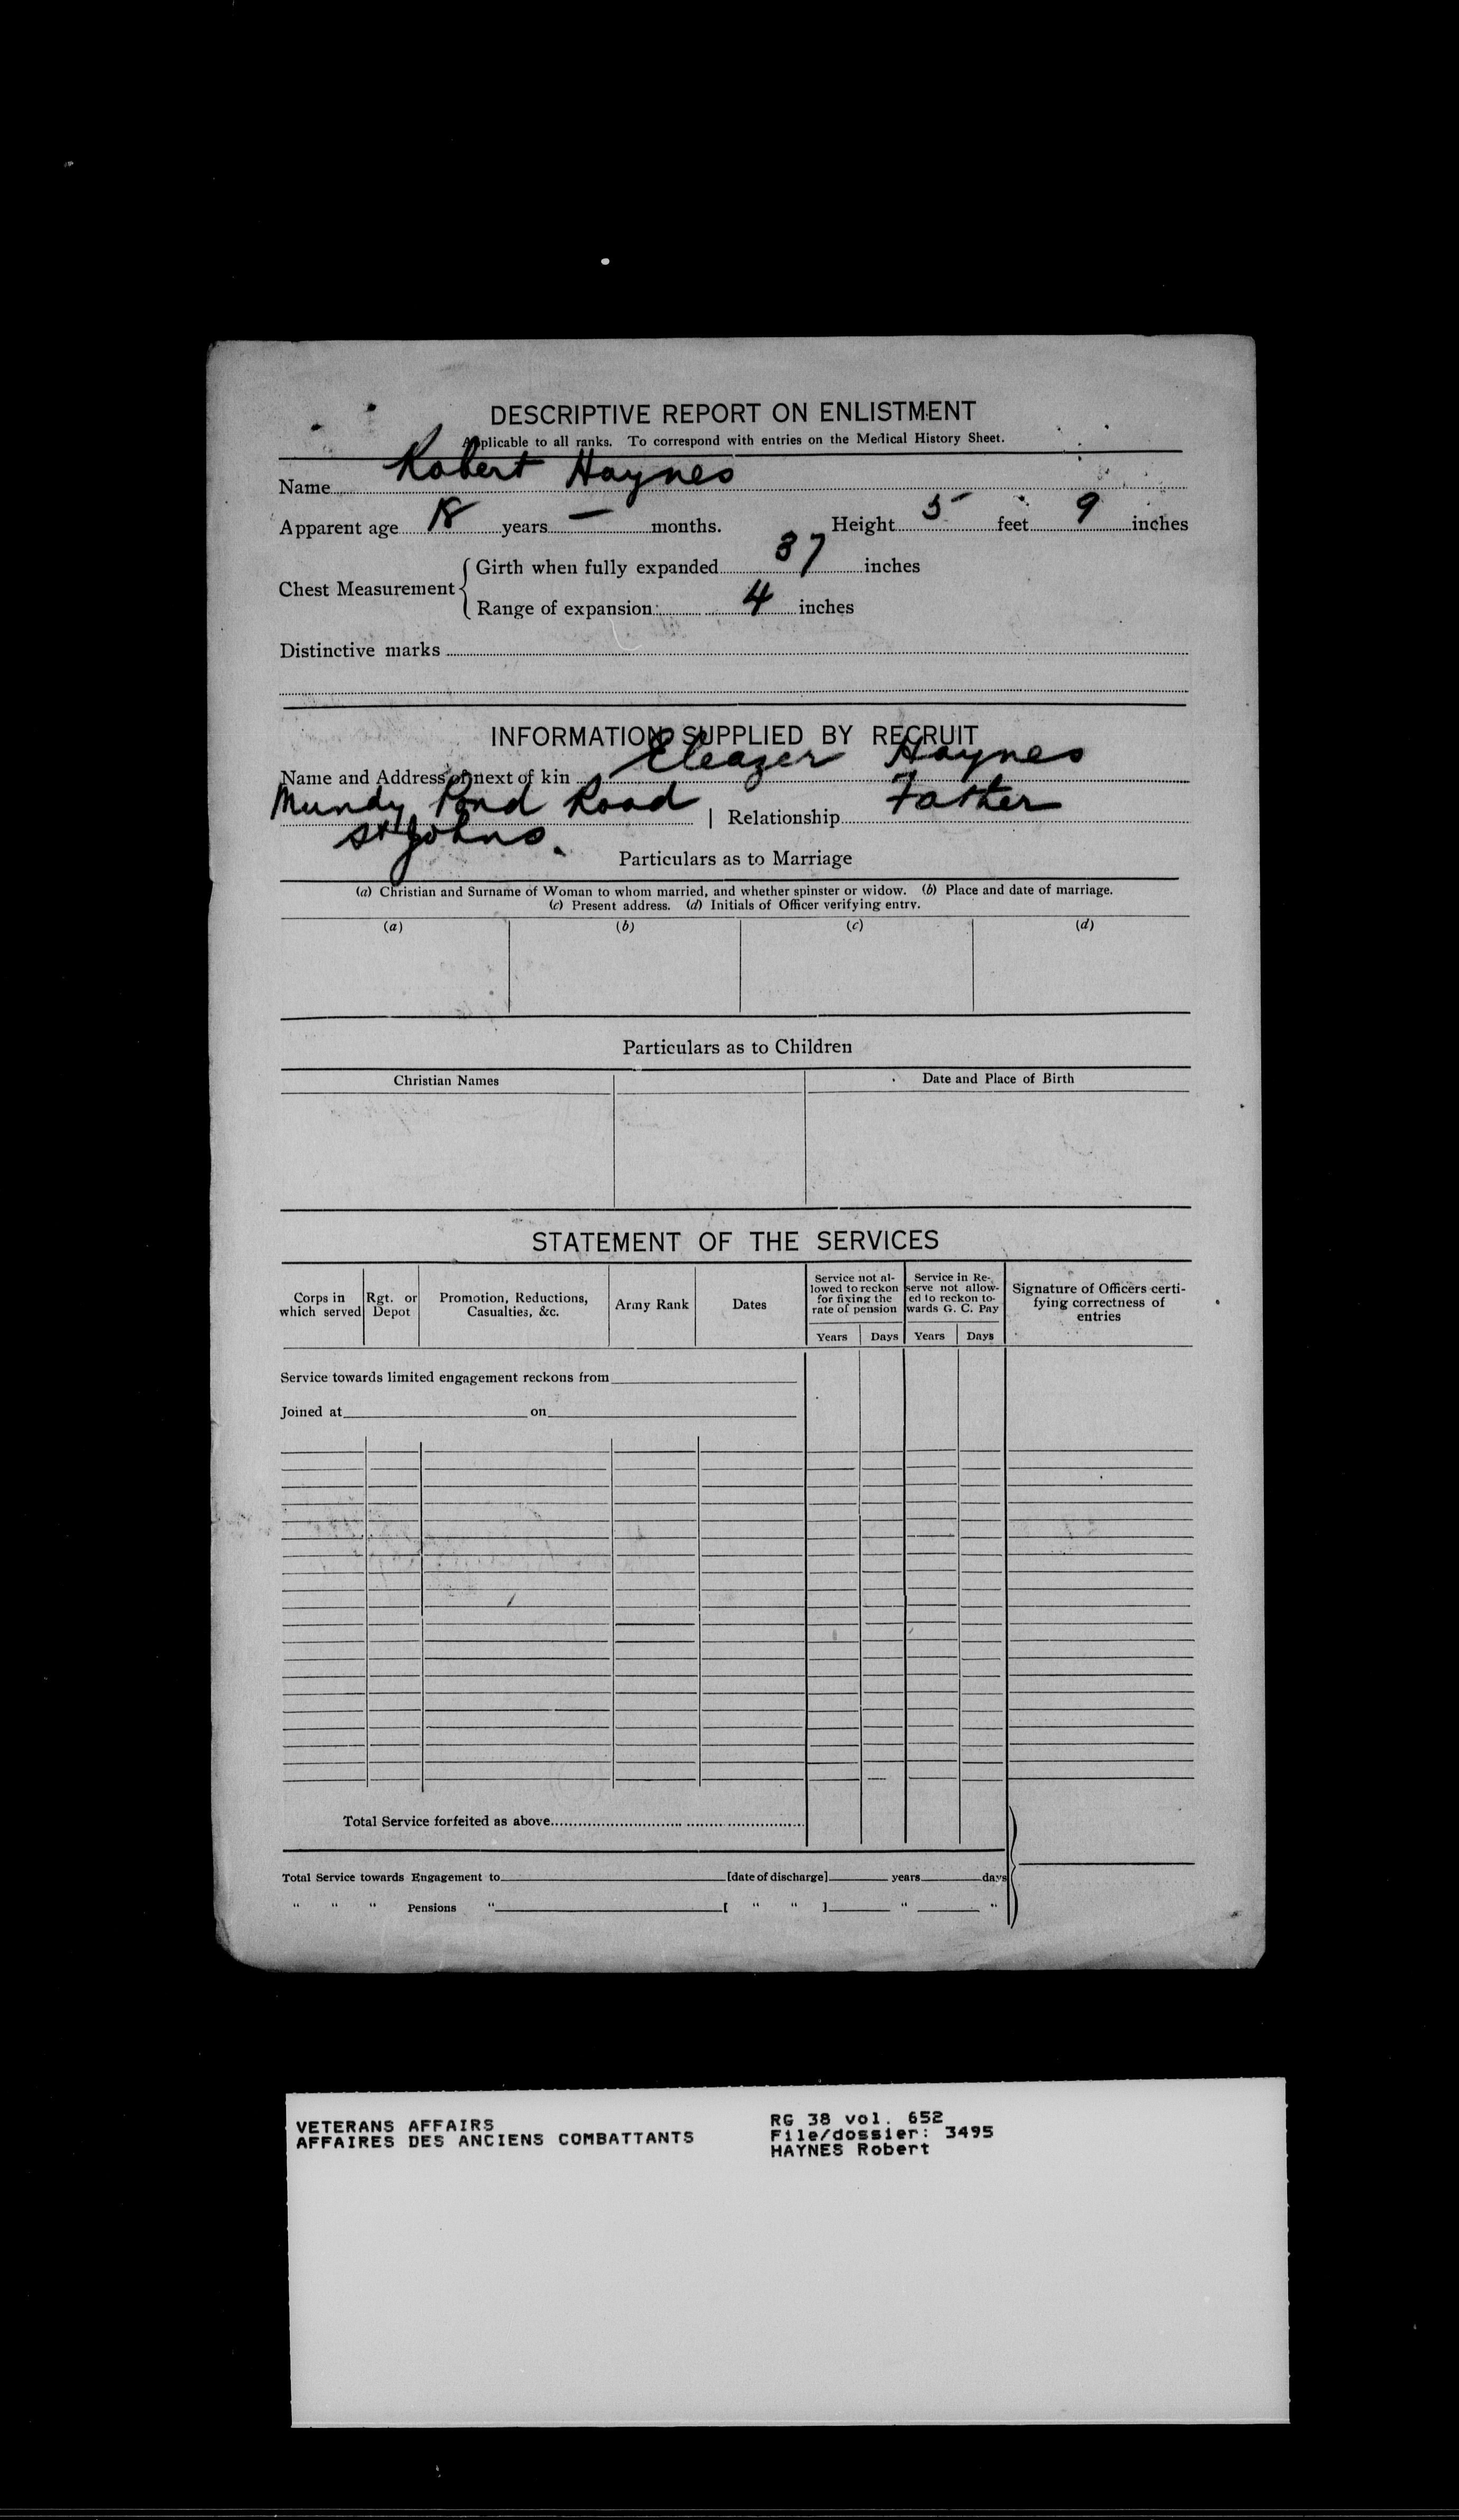 DESCRIPTIVE REPORT ON ENLISTMENT
Applicable to all ranks. To correspond with entries on the Medical History Sheet.
Name Robert Haynes
Apparent age 18 years — months. Height 5 feet 9 inches
Chest Measurement { Girth when fully expanded 37 inches
Range of expansion 4 inches
Distinctive marks
INFORMATION SUPPLIED BY RECRUIT
Name and Address of next of kin Eleazer Haynes
Mundy Pond Road | Relationship Father
St Johns.
Particulars as to Marriage
(a) Christian and Surname of Woman to whom married, and whether spinster or widow. (b) Place and date of marriage.
(c) Present address. (d) Initials of Officer verifying entry.
(a) (b) (c) (d)
Particulars as to Children
Christian Names Date and Place of Birth
STATEMENT OF THE SERVICES
Corps in which served Rgt. or Depot Promotion, Reductions, Casualties, &c. Army Rank Dates Service not allowed to reckon for fixing the rate of pension Service in Reserve not allowed to reckon towards G. C. Pay Signature of Officers certifying correctness of entries
Years Days Years Days
Service towards limited engagement reckons from
Joined at on
Total Service forfeited as above
Total Service towards Engagement to [date of discharge] years days
" " " Pensions " [ " " ] " "
VETERANS AFFAIRS RG 38 vol. 652
AFFAIRES DES ANCIENS COMBATTANTS File/dossier: 3495
HAYNES Robert